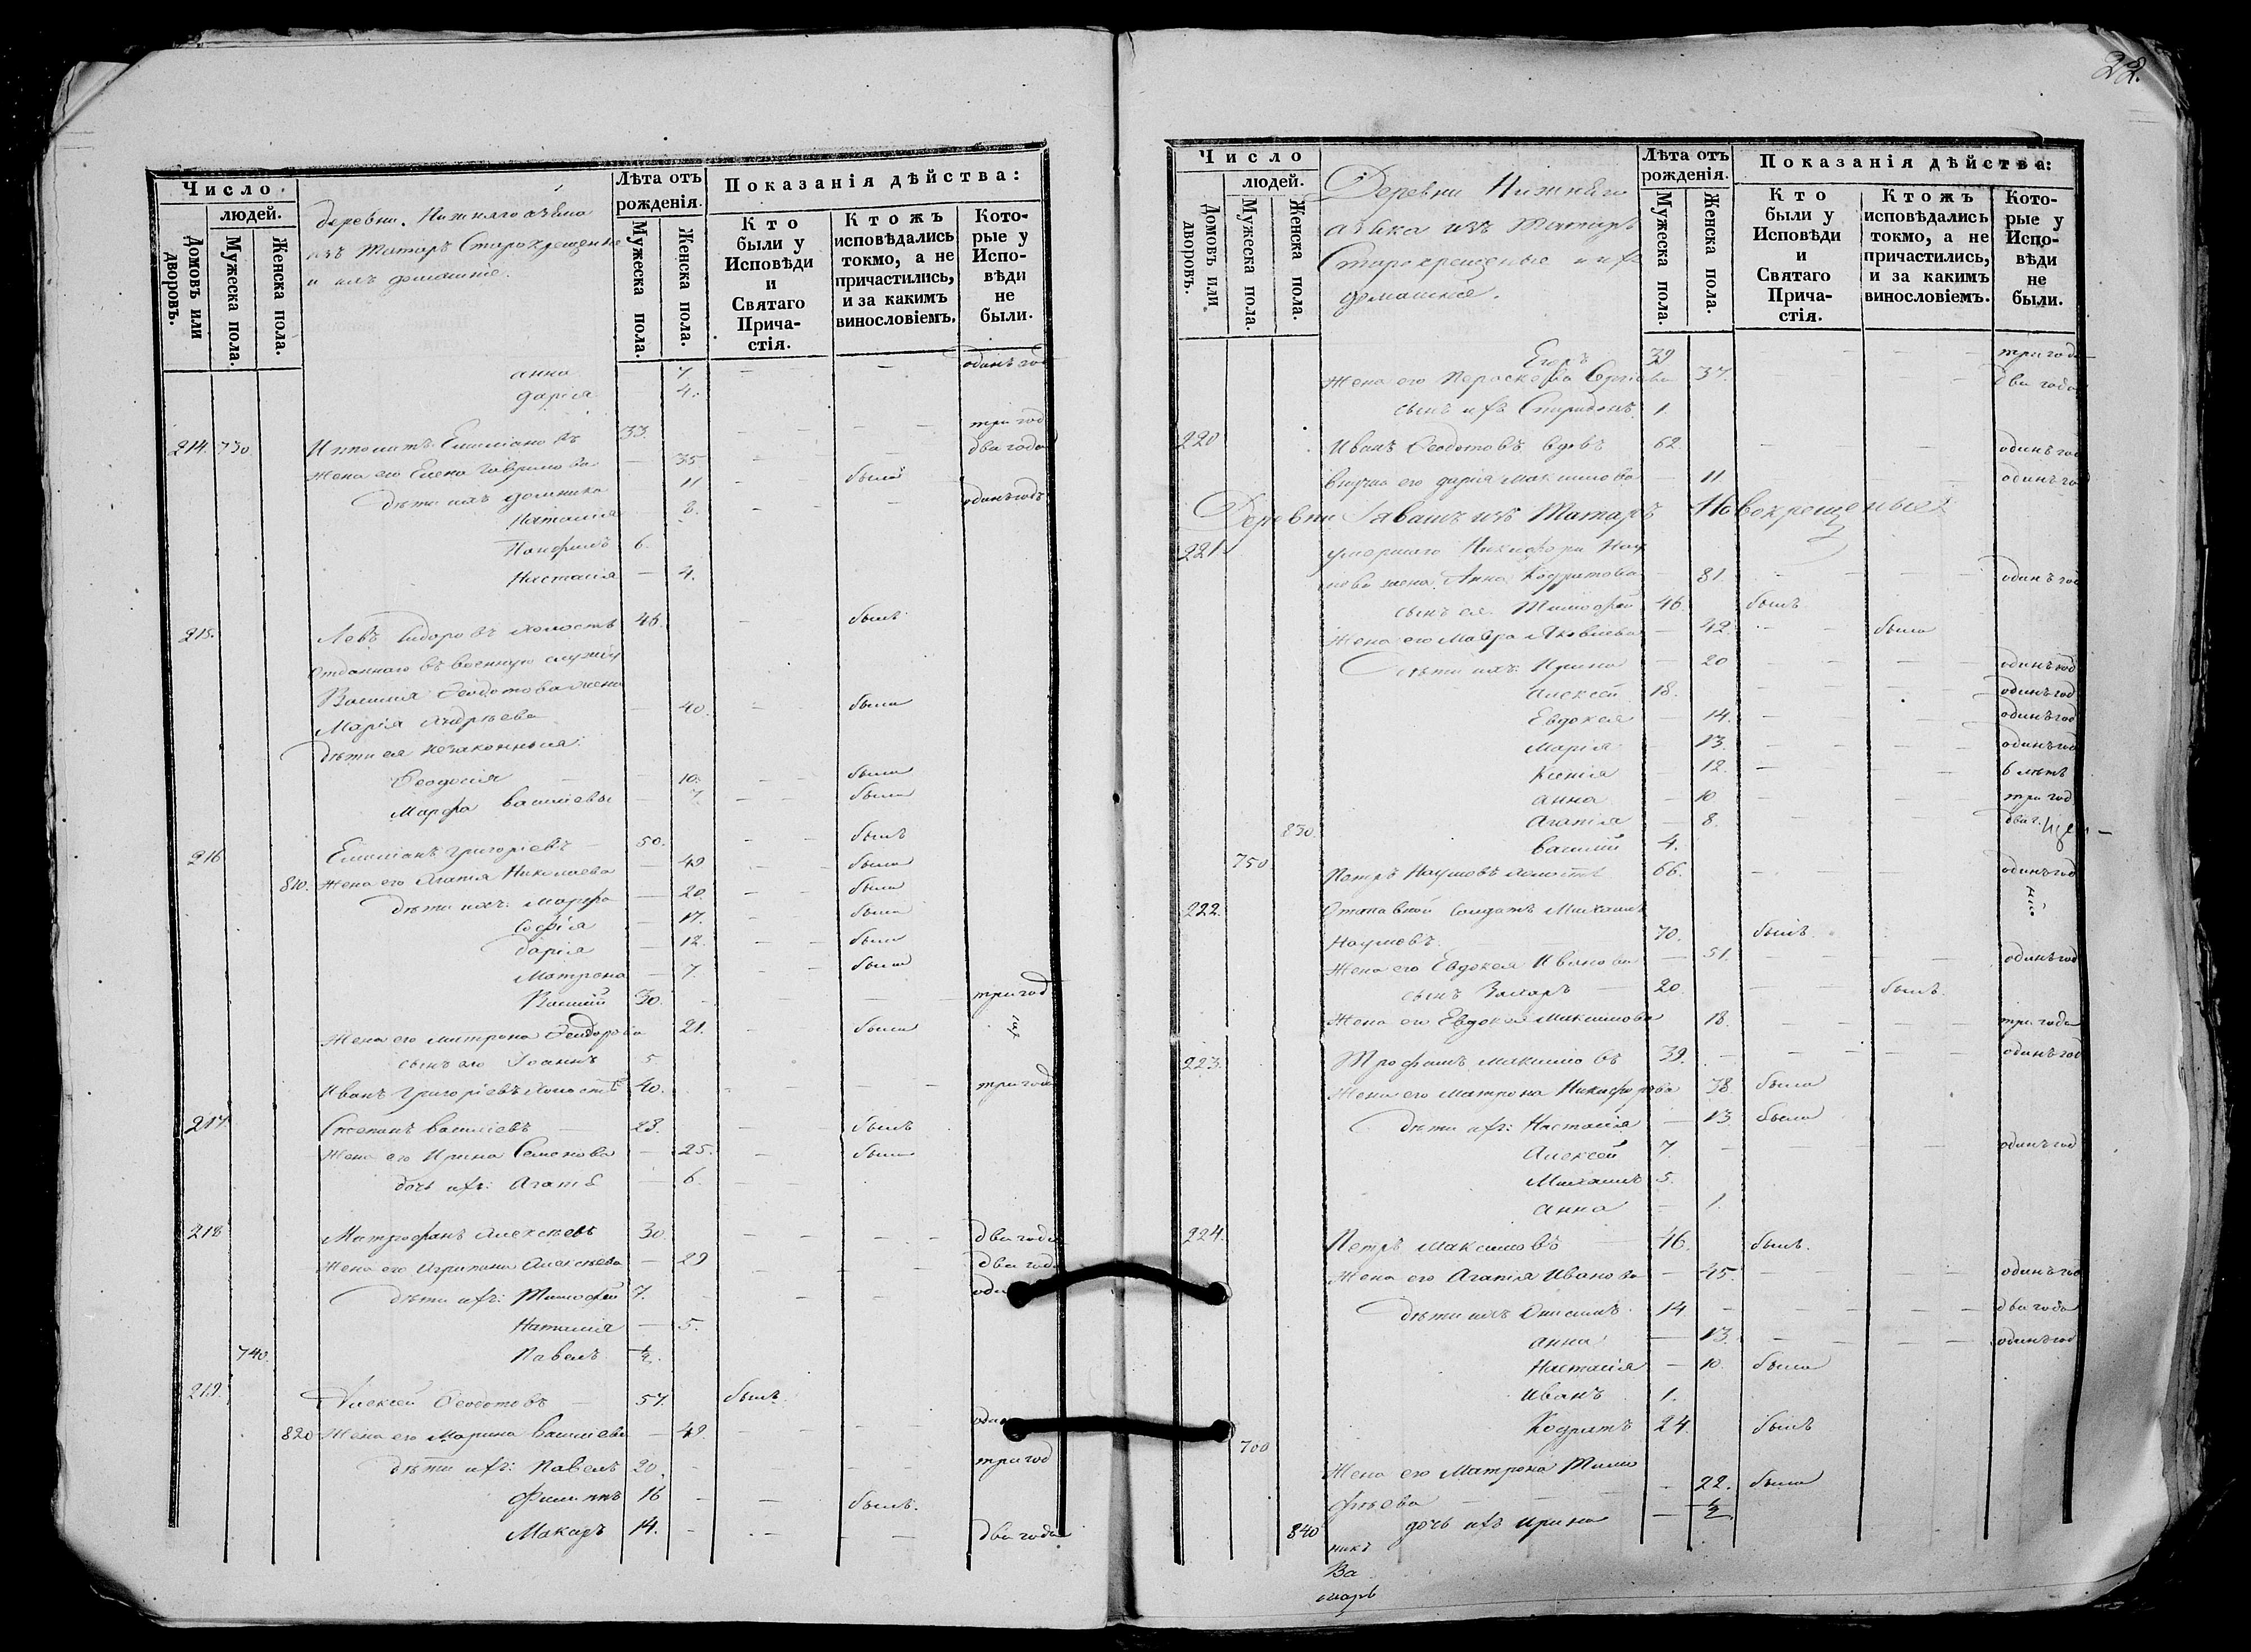 Число
людей.
Домовъ или дворовъ.
Мужеска пола.
Женска пола.
деревни. Нижняго азяка
изъ Татаръ Старокрещенные
и ихъ домашніе.
Лѣта отъ рожденія.
Мужеска пола.
Женска пола.
Показанія дѣйства:
Кто были у Исповѣди и Святаго Прича-стія.
Ктожъ исповѣдались токмо, а не причастились, и за какимъ винословіемъ.
Кото-рые у Испо-вѣди не были.
анна 7. одинъ год
дарія 4.
214. 730. Ипполитъ Емиліановъ 33. три год
жена его Елена Гаврилова 35. два года
дѣти ихъ Домника 11 была
Наталія 8. одинъ годъ
Панфилъ 6.
Настасія 4.
215. Левъ Ѳедоровъ холостъ 46. былъ
Отданнаго въ военную службу
Василія Ѳеодотова жена
Марія Андреева 40. была
дѣти ея незаконныя:
Ѳеодосія 10. была
Марфа Васильевы 7. была
216 Емиліанъ Григоріевъ 50. былъ
810. жена его Агапія Николаева 49 была
дѣти ихъ: Марфа 20. была
Софія 17. была
дарія 12. была
Матрона 7. была
Василій 30. три год
жена его Матрона Ѳеодорова 21. была
сынъ его Іоаннъ 5
Иванъ Григоріевъ холостъ 40. три года
217. Степанъ Васильевъ 23. былъ
жена его Ирина Семенова 25. была
дочь ихъ: Агапія 6.
218 Митрофанъ Алексѣевъ 30. два года
жена его Агрипина Алексѣева 29 два года
дѣти ихъ: Тимофей 7.
Наталія 5.
740. Павелъ ½.
219. Алексей Ѳеодотовъ 57. былъ.
820 Жена его Марина Васильева 49.
дѣти ихъ: Павелъ 20. три год
Филиппъ 16 былъ.
Макаръ 14. два года
22.
Число
людей.
Домовъ или дворовъ.
Мужеска пола.
Женска пола.
Деревни Нижняго
азяка изъ Татаръ
Старокрещеные и ихъ
домашніе.
Лѣта отъ рожденія.
Мужеска пола.
Женска пола.
Показанія дѣйства:
Кто были у Исповѣди и Святаго Прича-стія.
Ктожъ исповѣдались токмо, а не причастились, и за какимъ винословіемъ.
Кото-рые у Испо-вѣди не были.
Егоръ 39 три года
жена его Параскева Сергіева 37. два года
сынъ ихъ Спиридонъ 1.
220 Иванъ Ѳеодотовъ вдовъ 62. одинъ год
внучка его дарія Максимова 11. одинъ год
Деревни изъ Татаръ Новокрещеные
221. умершаго Никифора Нау
мова жена Анна Кодратова 81. одинъ год
сынъ ея Тимофей 46. былъ
жена его Мавра Яковлева 42. была
дѣти ихъ: Ирина 20 одинъ год
Алексей 18. одинъ год
Евдокея 14. одинъ год
Марія 13. одинъ год
Ксенія 12. 6 лѣтъ
анна 10 три год
830. Агапія 8. два г.
Василій 4.
750 Петръ Наумовъ холостъ 66. одинъ год
222. Отставной Солдатъ Михаилъ
Наумовъ 70. былъ.
жена его Евдокея Иванова 51. одинъ год
сынъ Захаръ 20. былъ.
жена его Евдокея Максимова 18. три года
223. Трофимъ Максимовъ 39. одинъ год
жена его Матрона Никифорова 38. была
дѣти ихъ: Настасія 13 была
Алексей 7. одинъ год
Михаилъ 5.
анна 1.
224. Петръ Максимовъ 46. былъ.
жена его Агапія Иванова 45. одинъ год
дѣти ихъ Онисимъ 14 два года
анна 13. одинъ год
Настасія 10. была
Иванъ 1.
700 Кодратъ 24. былъ
жена его Матрона Тимо
фѣева 22. была
840 дочь ихъ Ирина ½
никъ
Ва